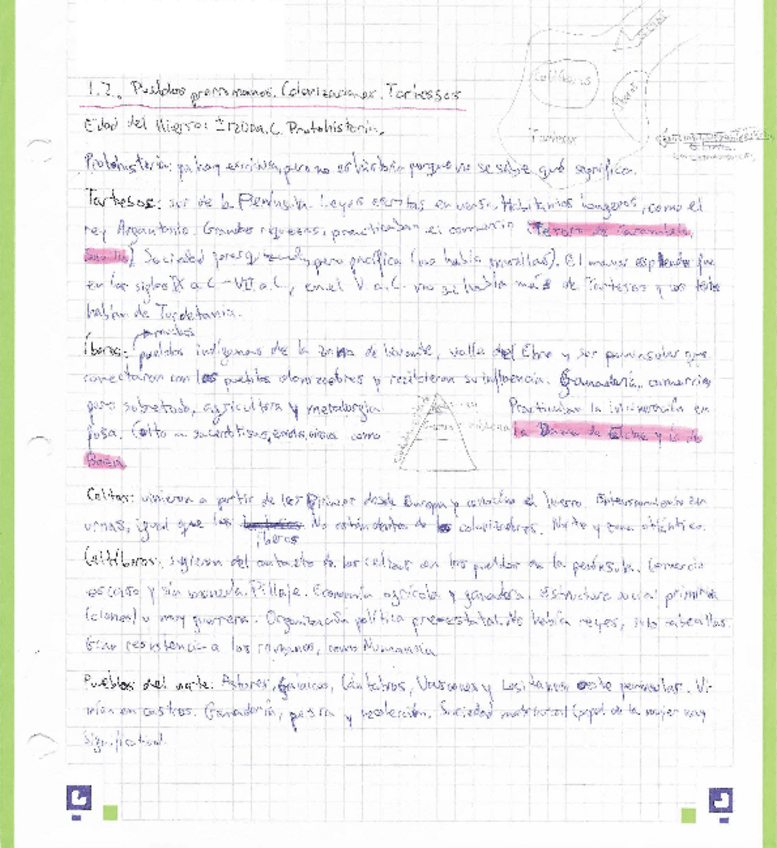 Celtas
Celtíberos
Iberos
Tartessos
1.2. Pueblos prerromanos. Colonizaciones. Tartessos
Edad del Hierro: I 1200 a.C. Protohistoria.
Protohistoria: ya hay escritura, pero no es historia porque no se sabe qué significa.
Tartesos: sur de la Península. Leyes escritas en verso. Habitantes longevos, como el
rey Argantonio. Grandes riquezas, practicaban el comercio (Tesoro de Carambolo,
Sevilla). Sociedad jerarquizada, pero pacífica (no había murallas). El mayor esplendor fue
en los siglos IX a.C-VII a.C., en el V a.C. no se habla más de Tartesos y solo
hablan de Turdetania.
Íberos: pueblos indígenas de la zona de Levante, valle del Ebro y sur peninsular que
conectaron con los pueblos colonizadores y recibieron su influencia. Ganadería, comercio
pero sobretodo, agricultura y metalurgia
Practicaban la incineración en
fosa. Culto a sacerdotisas, como
la Dama de Elche y la de
Baza
Celtas: vinieron a partir de los Pirineos desde Europa y conocían el hierro. Enterramiento en
urnas, igual que los No están dentro de los colonizadores. Norte y zona atlántica.
íberos
Celtíberos: surgieron del contacto de los celtas con los pueblos de la península. Comercio
escaso y sin moneda. Pillaje. Economía agrícola y ganadera. Estructura social primitiva
(clanes) y muy guerrera. Organización política preestatal. No había reyes, solo
Gran resistencia a los romanos, como Numancia
Pueblos del norte: Astures, Galaicos, Cántabros, Vascones y Lusitanos oeste peninsular. Vi-
vían en castros. Ganadería, pesca y recolección. Sociedad matriarcal (papel de la mujer muy
significativo).